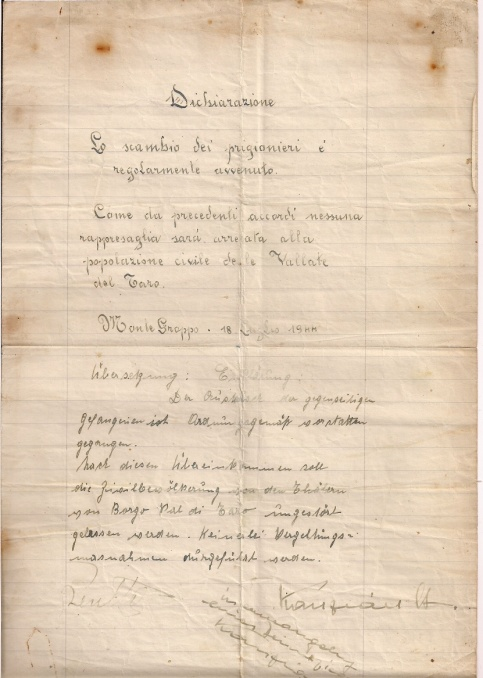 Dichiarazione
Lo scambio dei prigionieri é
regolarmente avvenuto.
Come da precedenti accordi nessuna
rappresaglia sará arrecata alla
popolazione civile delle Vallate
del Taro.
Monte Groppo - 18 Luglio 1944
Übersetzung: Erklärung:
Der der gegenseitigen
Gefangenen ist Ordnungsgemäß vonstatten
gegangen.
Nach diesen Übereinkommen soll
die Zivilbevölkerung von den Thälern
von Borgo Val di Taro ungestört
gelassen werden. Keinerlei Vergeltungs=
masnahmen durgeführt werden.